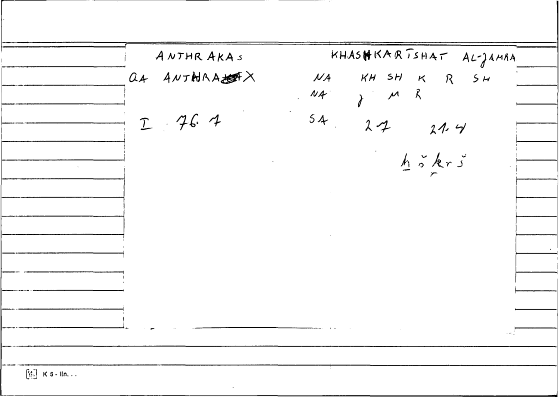 ANTHRAKAS KHASHKARISHAT AL-JAMRA
QA ANTHRAX NA KH SH K R SH
NA J M R
I 76.7 SA 27 27.4
ḫ š k r š
r
K 5 - lin...